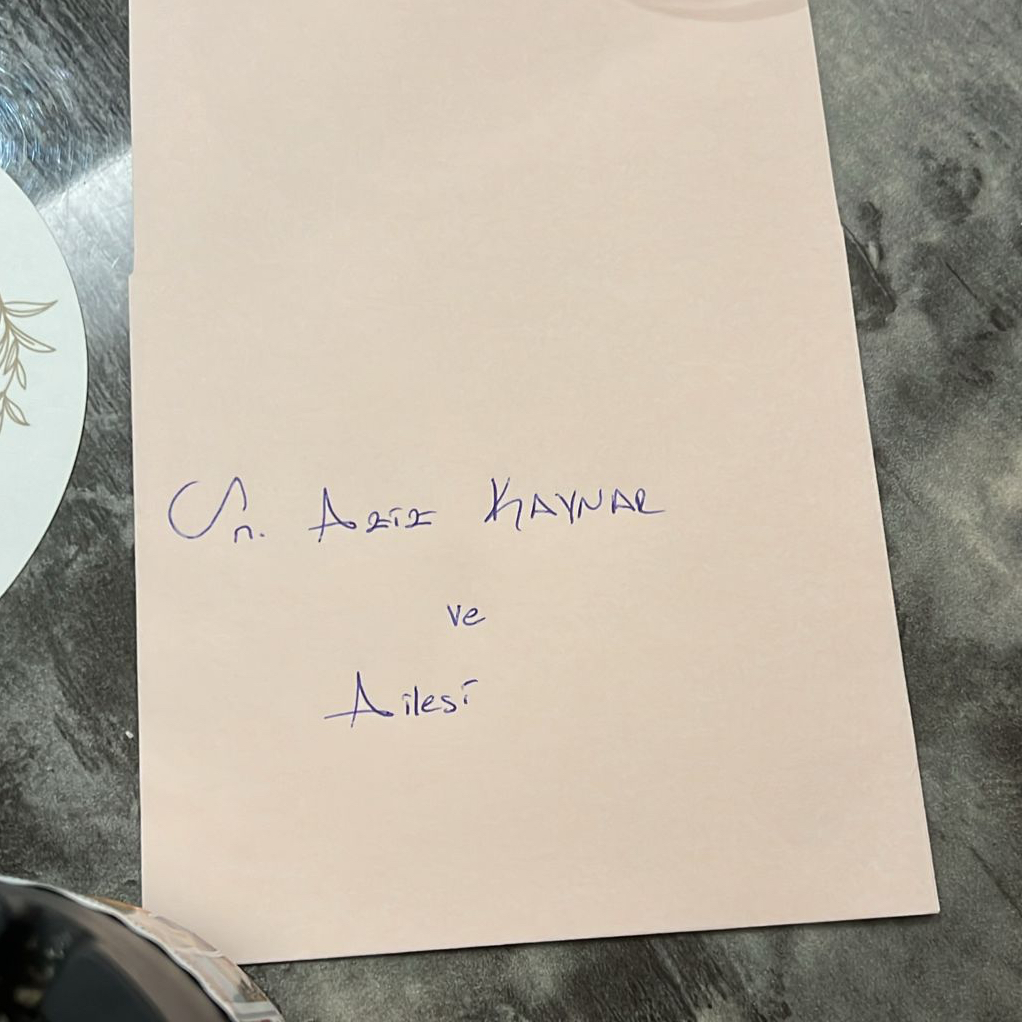 Sn. Aziz KAYNAR
ve
Ailesi